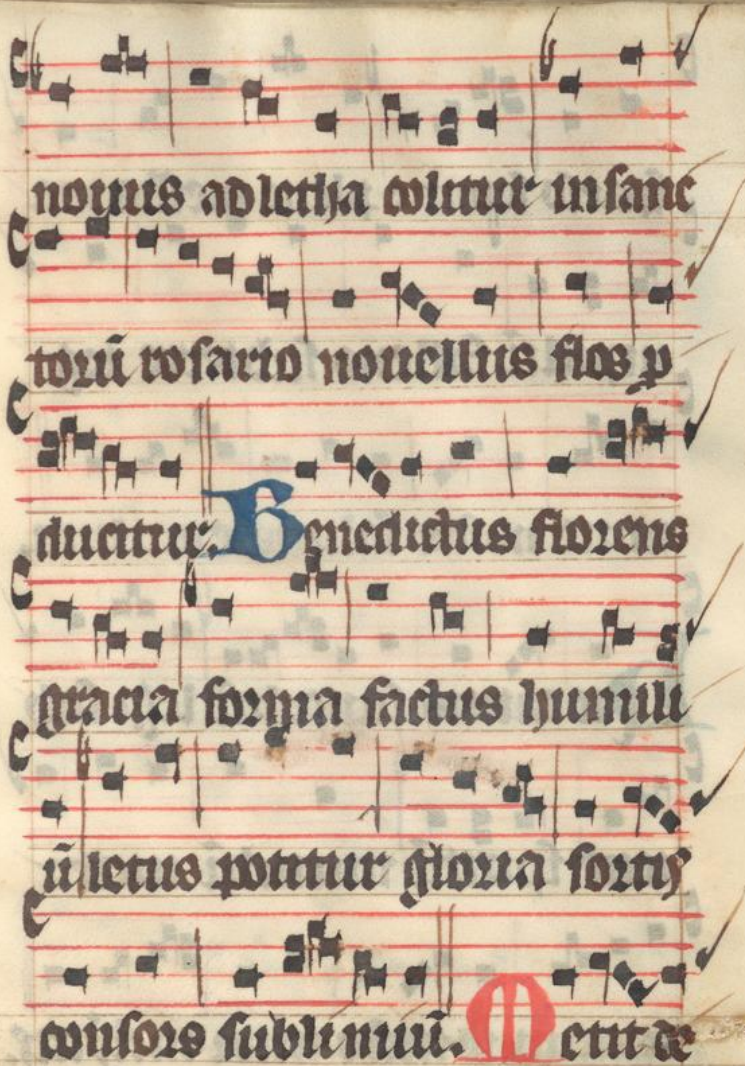 nouus ad letha colitur in sanc
torū rosario nouellus flos p
ducitur. Benedictus florens
gracia forma factus humili
ū letus potitur gloria sortis
consors sublimiū. Metit de